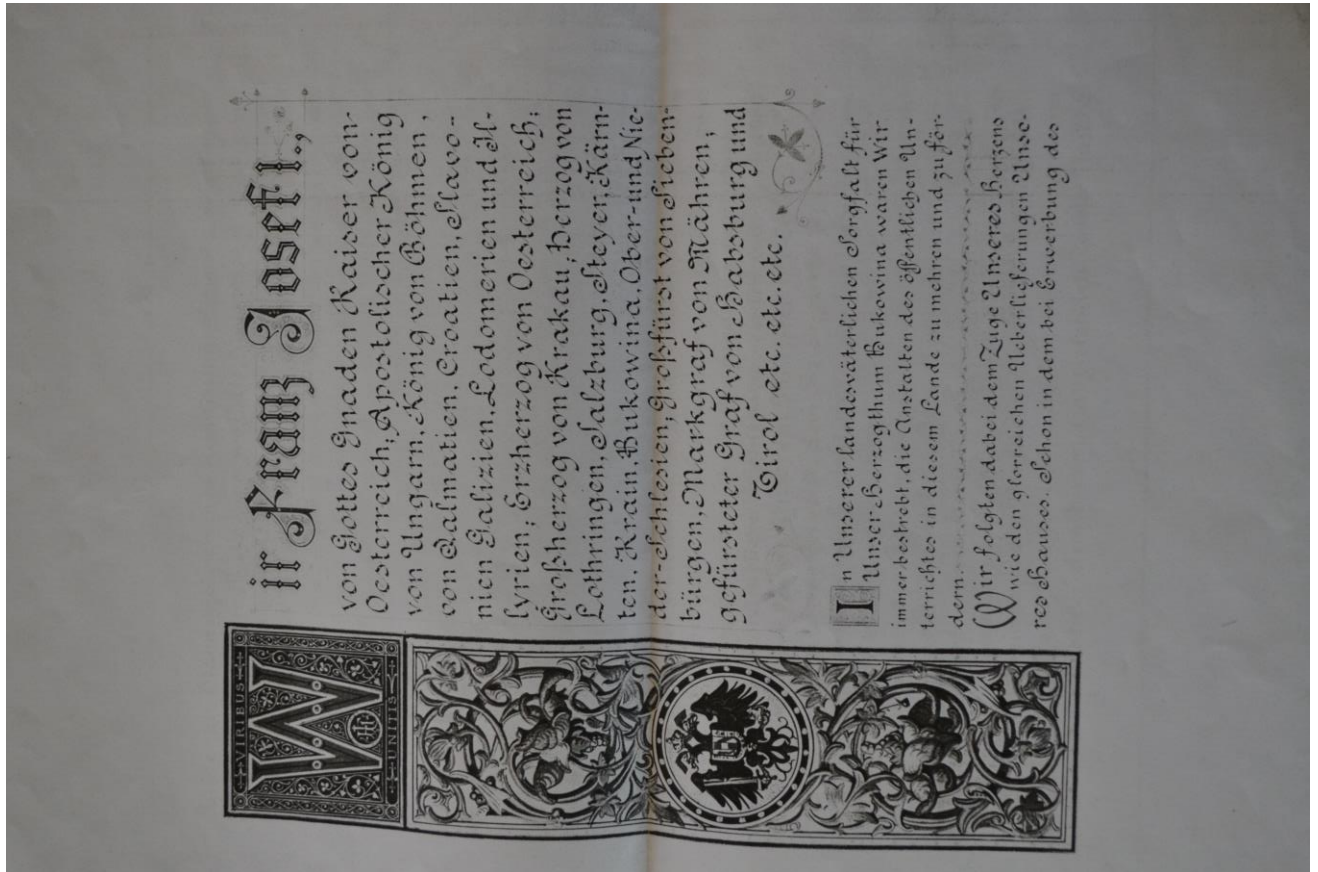 VIRIBUS
UNITIS
Wir Franz Josef I.,
von Gottes Gnaden Kaiser von
Oesterreich; Apostolischer König
von Ungarn, König von Böhmen,
von Dalmatien, Croatien, Slavo-
nien Galizien, Lodomerien und Il-
lyrien; Erzherzog von Oesterreich;
Großherzog von Krakau; Herzog von
Lothringen, Salzburg, Steyer, Kärn-
ten, Krain, Bukowina, Ober- und Nie-
der-Schlesien; Großfürst von Sieben-
bürgen, Markgraf von Mähren;
gefürsteter Graf von Habsburg und
Tirol etc. etc. etc.
In Unserer landesväterlichen Sorgfalt für
Unser Herzogthum Bukowina waren Wir
immer bestrebt, die Anstalten des öffentlichen Un-
terrichtes in diesem Lande zu mehren und zu för-
dern.
Wir folgten dabei dem Zuge Unseres Herzens
wie den glorreichen Ueberlieferungen Unse-
res Hauses. Schon in dem bei Erwerbung des